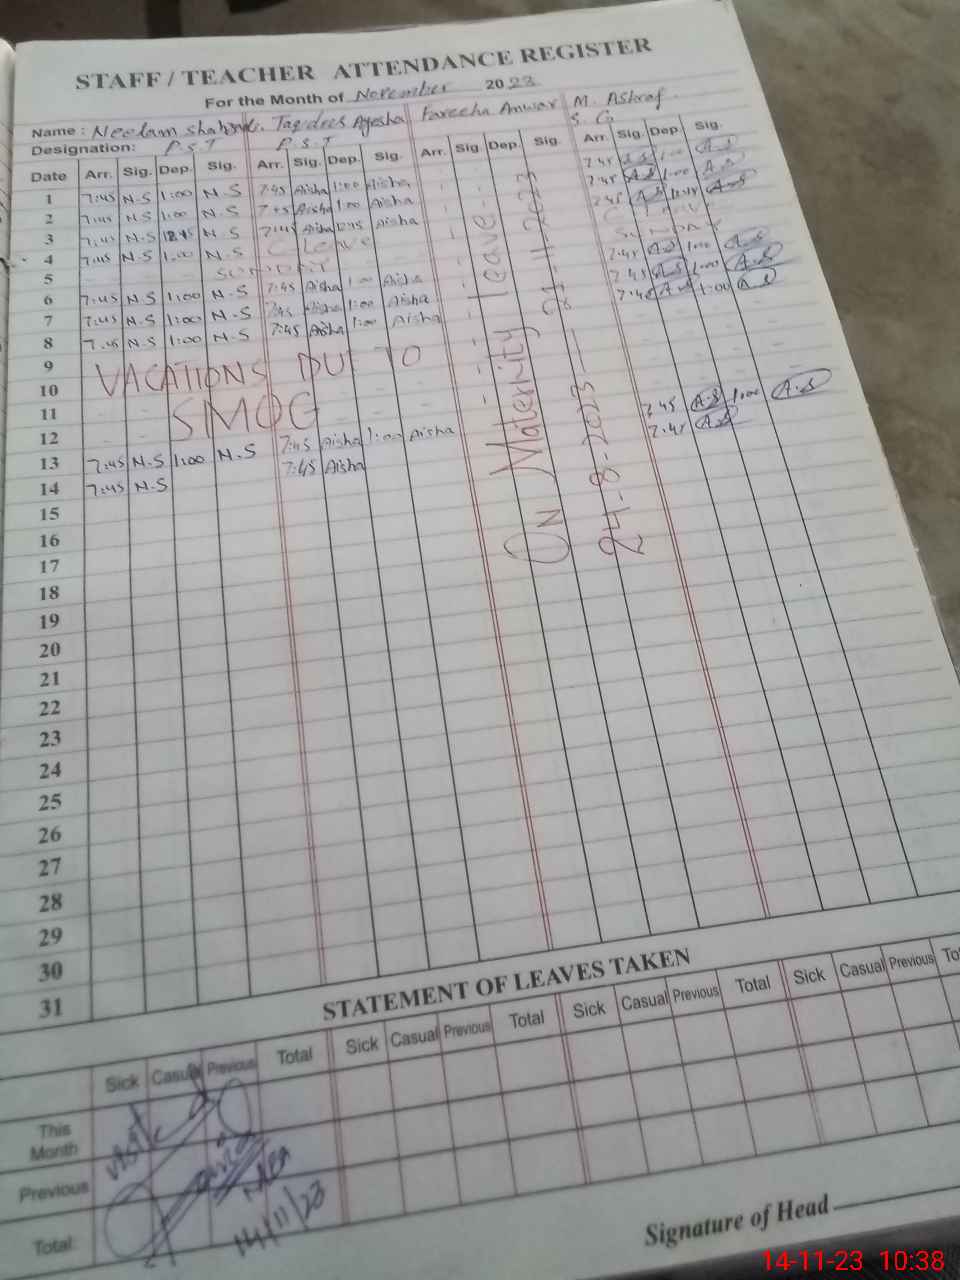 STAFF / TEACHER ATTENDANCE REGISTER
For the Month of November 2023
Name : Neelam Ayesha Fareeha Anwar M. Ashraf
Designation: P.S.T P.S.T S.G
Date Arr. Sig. Dep. Sig. Arr. Sig. Dep. Sig. Arr. Sig. Dep. Sig. Arr. Sig. Dep. Sig.
1 7:45 N.S 1:00 N.S 7:45 Aisha 1:00 Aisha 7:45 1:00 A.S
2 7:45 N.S 1:00 N.S 7:45 Aisha 1:00 Aisha 7:45 A.S 1:00 A.S
3 7:45 N.S 12:45 N.S 7:45 Aisha 12:45 Aisha 7:45 A.S A.S
4 7:45 N.S 1:00 N.S C Leave C Leave
5 SUNDAY SUNDAY
6 7:45 N.S 1:00 N.S 7:45 Aisha 1:00 Aisha 7:45 A.S 1:00 A.S
7 7:45 N.S 1:00 N.S 7:45 Aisha 1:00 Aisha 7:45 A.S 1:00 A.S
8 7:45 N.S 1:00 N.S 7:45 Aisha 1:00 Aisha 7:45 A.S 1:00 A.S
9
10 VACATIONS DUE TO
11 SMOG
12
13 7:45 N.S 1:00 N.S 7:45 Aisha 1:00 Aisha 7:45 A.S 1:00 A.S
14 7:45 N.S 7:45 Aisha 7:45 A.S
15
16
17
18
19
20
21
22
23
24
25
26
27
28
29
30
31
On Maternity Leave
24-8-2023 — 21-11-2023
STATEMENT OF LEAVES TAKEN
Sick Casual Previous Total Sick Casual Previous Total Sick Casual Previous Total Sick Casual Previous To
This Month
Previous
Total
14/11/23
Signature of Head
14-11-23 10:38